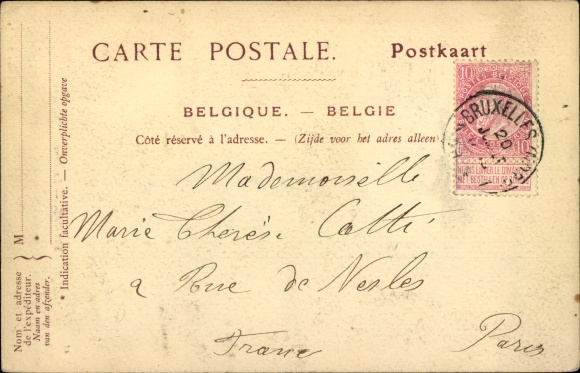 CARTE POSTALE. Postkaart
BELGIQUE. — BELGIE
Côté réservé à l'adresse. — (Zijde voor het adres alleen)
Mademoiselle
Marie Therèse Catti
2 Rue de Nesles
France Paris
10 10
BRUXELLES
20
NE PAS LIVRER LE DIMANCHE
NIET BESTELLEN OP ZONDAG
* Indication facultative. — Onverplichte opgave
M
Nom et adresse
de l'expéditeur.
Naam en adres
van den afzender.